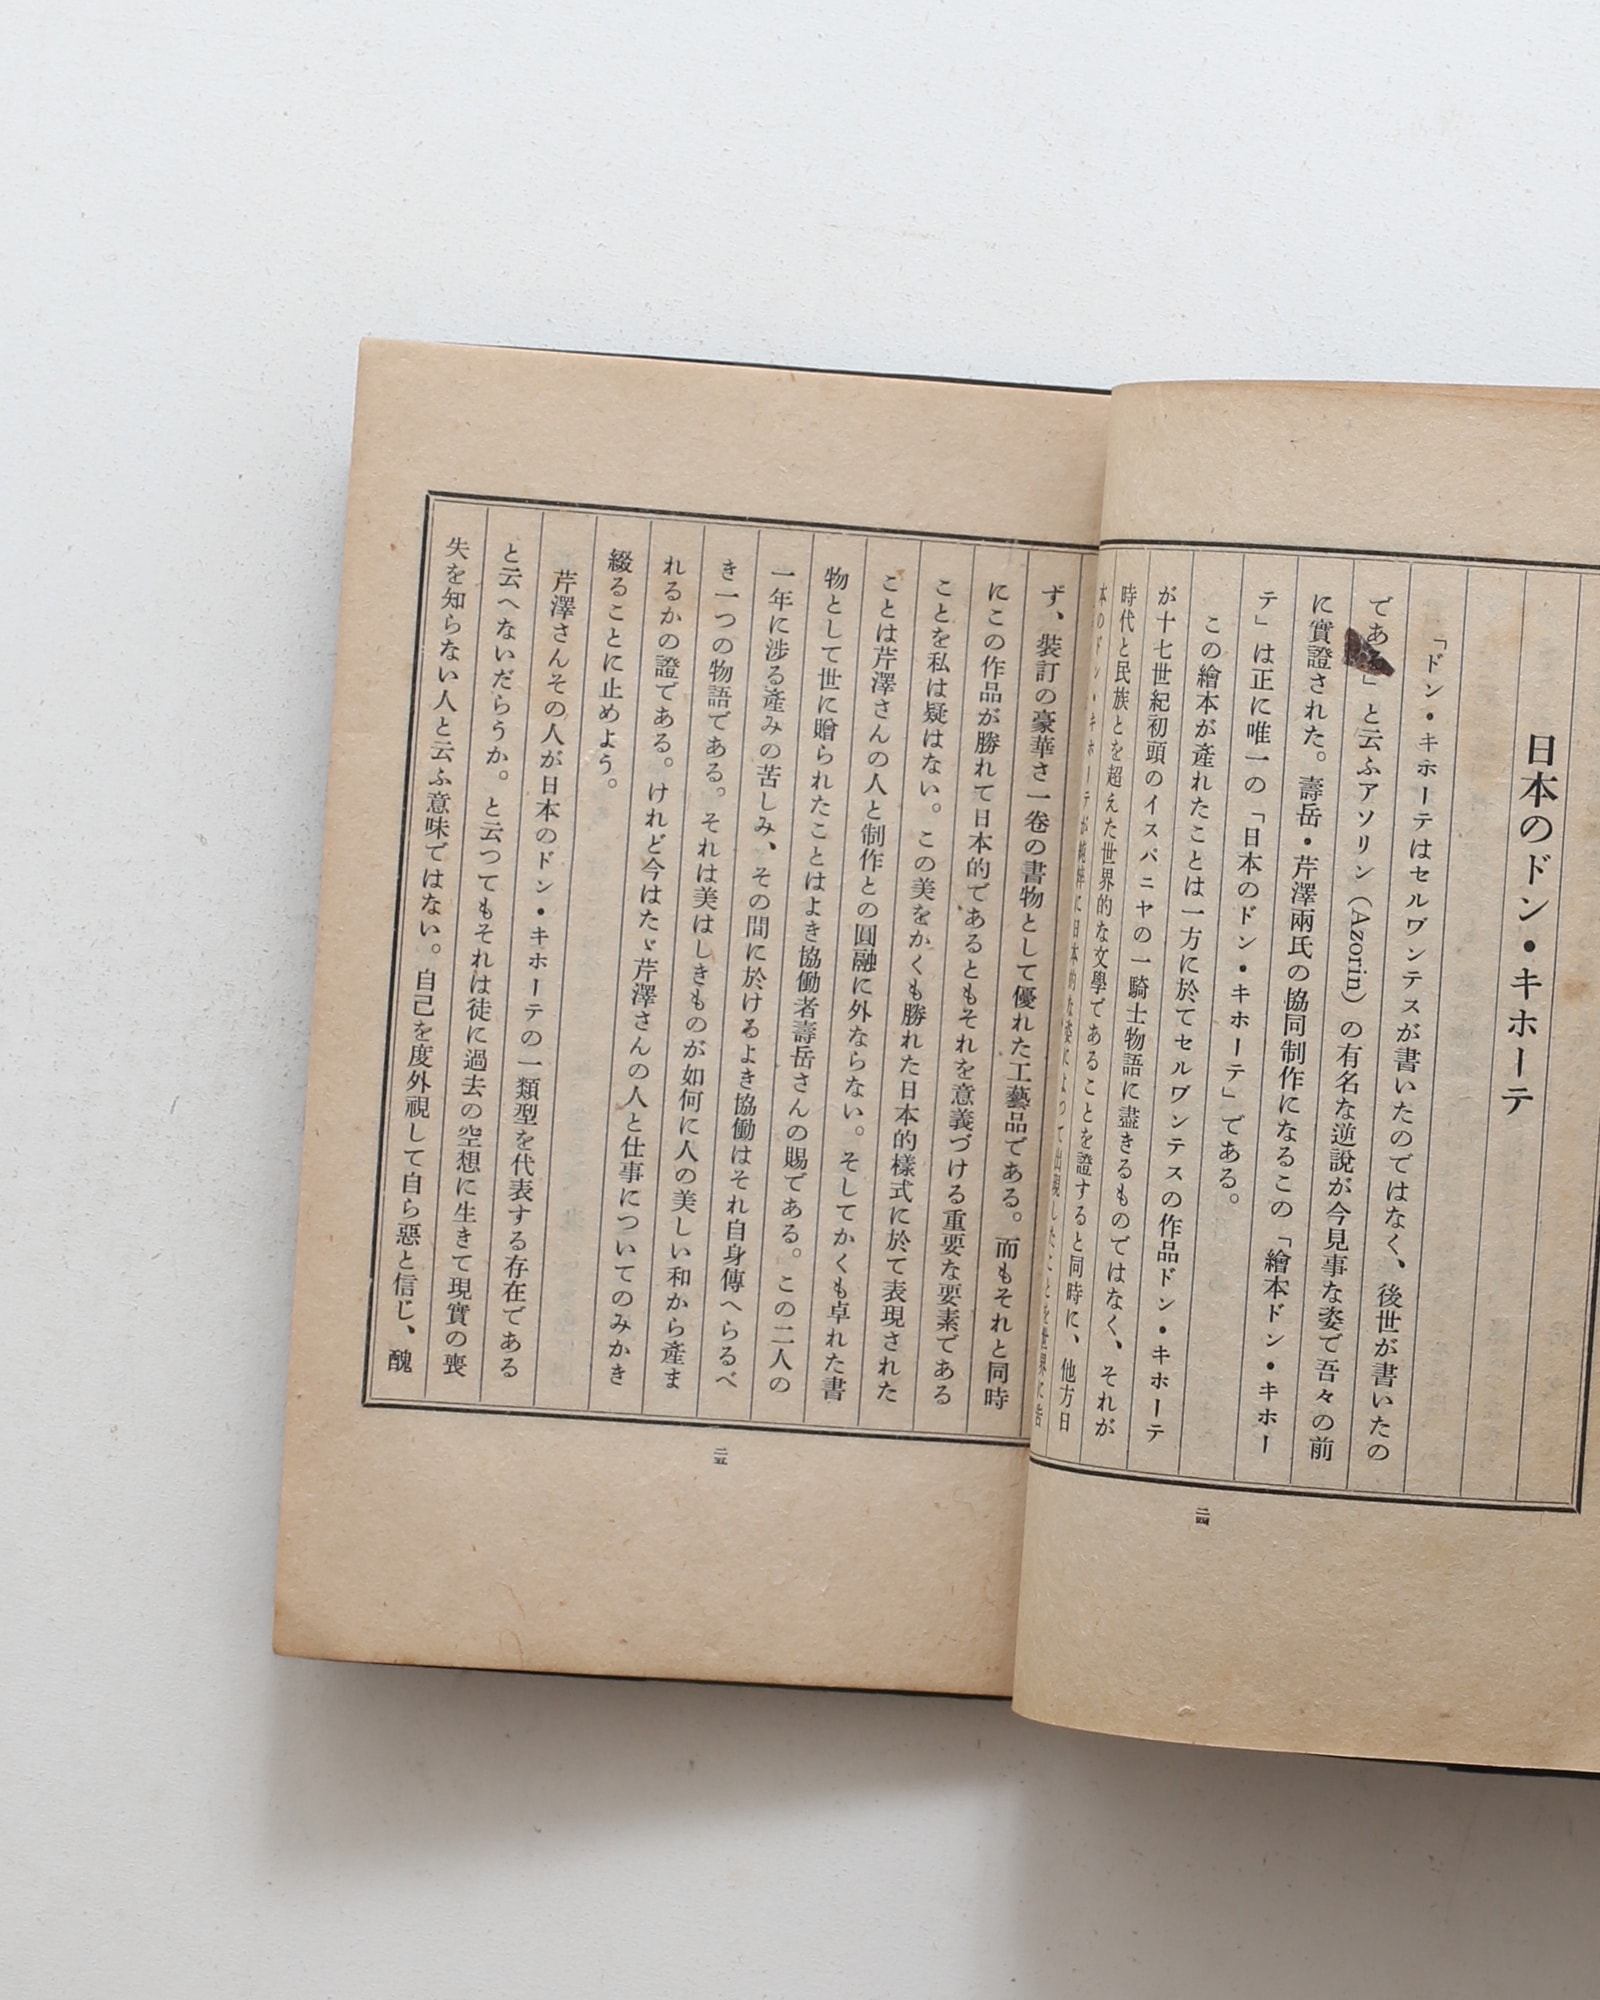 日本のドン・キホーテ
「ドン・キホーテはセルヷンテスが書いたのではなく、後世が書いたの
である」と云ふアソリン（Azorin）の有名な逆說が今見事な姿で吾々の前
に實證された。壽岳・芹澤兩氏の協同制作になるこの「繪本ドン・キホー
テ」は正に唯一の「日本のドン・キホーテ」である。
この繪本が產れたことは一方に於てセルヷンテスの作品ドン・キホーテ
が十七世紀初頭のイスパニヤの一騎士物語に盡きるものではなく、それが
時代と民族とを超えた世界的な文學であることを證すると同時に、他方日
本のドン・キホーテが純粹に日本的な姿によつて出現したことを世界に告
二四
ず、裝訂の豪華さ一卷の書物として優れた工藝品である。而もそれと同時
にこの作品が勝れて日本的であるともそれを意義づける重要な要素である
ことを私は疑はない。この美をかくも勝れた日本的樣式に於て表現された
ことは芹澤さんの人と制作との圓融に外ならない。そしてかくも卓れた書
物として世に贈られたことはよき協働者壽岳さんの賜である。この二人の
一年に涉る產みの苦しみ、その間に於けるよき協働はそれ自身傳へらるべ
き一つの物語である。それは美はしきものが如何に人の美しい和から產ま
れるかの證である。けれど今はたゞ芹澤さんの人と仕事についてのみかき
綴ることに止めよう。
芹澤さんその人が日本のドン・キホーテの一類型を代表する存在である
と云へないだらうか。と云つてもそれは徒に過去の空想に生きて現實の喪
失を知らない人と云ふ意味ではない。自己を度外視して自ら惡と信じ、醜
二五